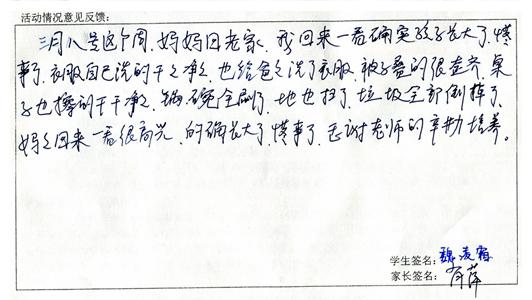 活动情况意见反馈：
三月八号这个周，妈妈回老家，我回来一看确实孩子长大了，懂
事了，衣服自己洗的干干净净，也给爸爸洗了衣服，被子叠的很整齐，桌
子也擦的干干净净，锅碗全刷了，地也扫了，垃圾全部倒掉了，
妈妈回来一看很高兴，的确长大了，懂事了，感谢老师的辛勤培养。
学生签名：
家长签名：